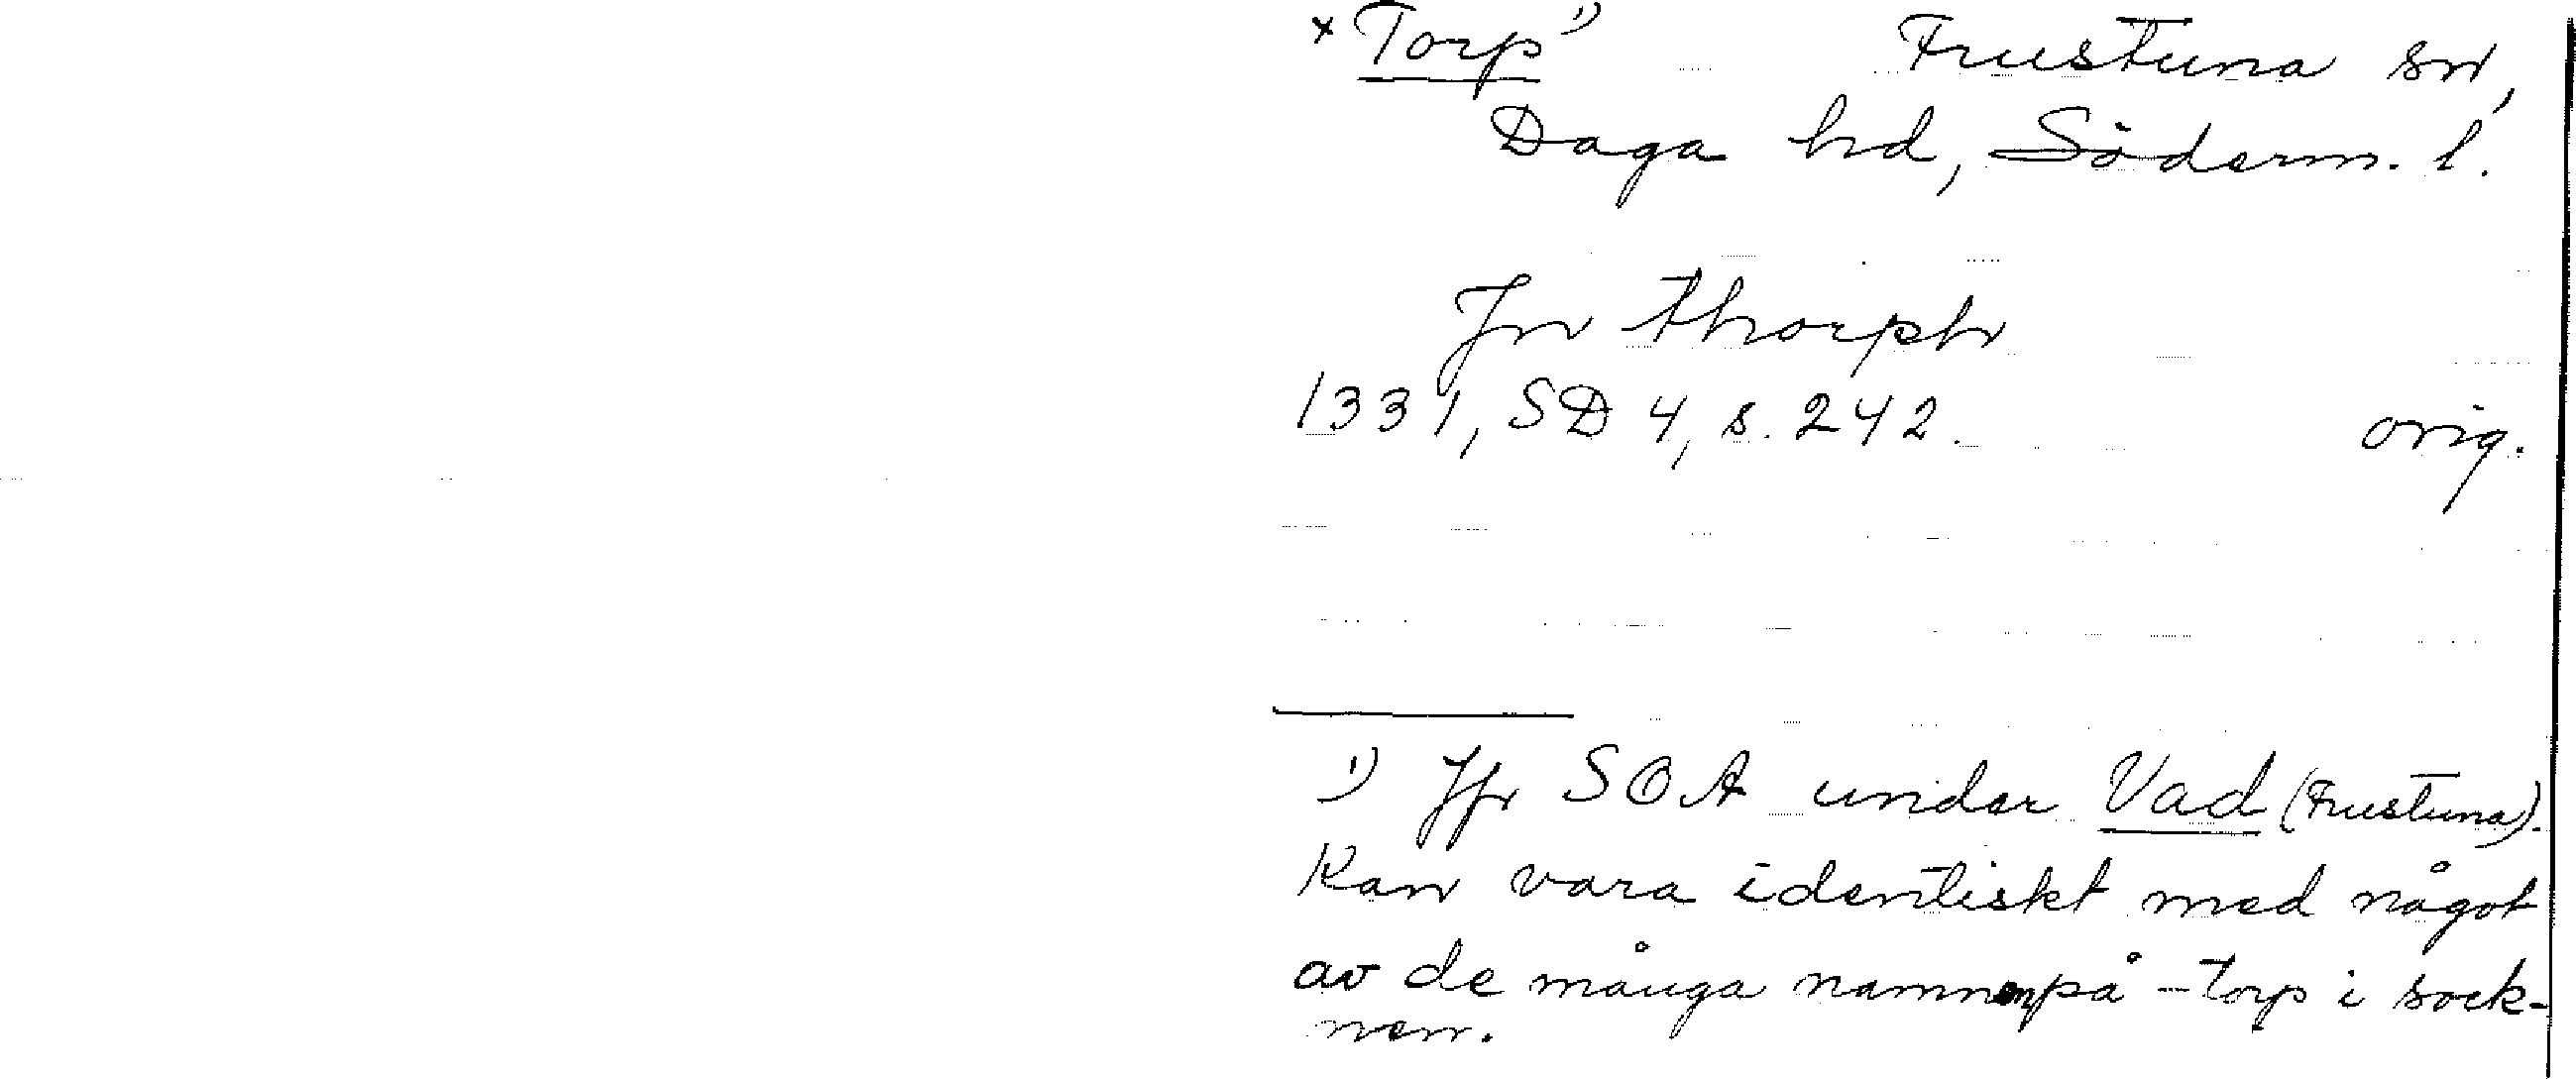 × Torp 1) Frustuna sn,
Daga hd, Söderm. l.
Jn thorph
1331, SD 4, s. 242. orig.
1) Jfr SOA under Vad (Frustuna).
Kan vara identiskt med något
av de många namnen på -torp i sock-
nen.